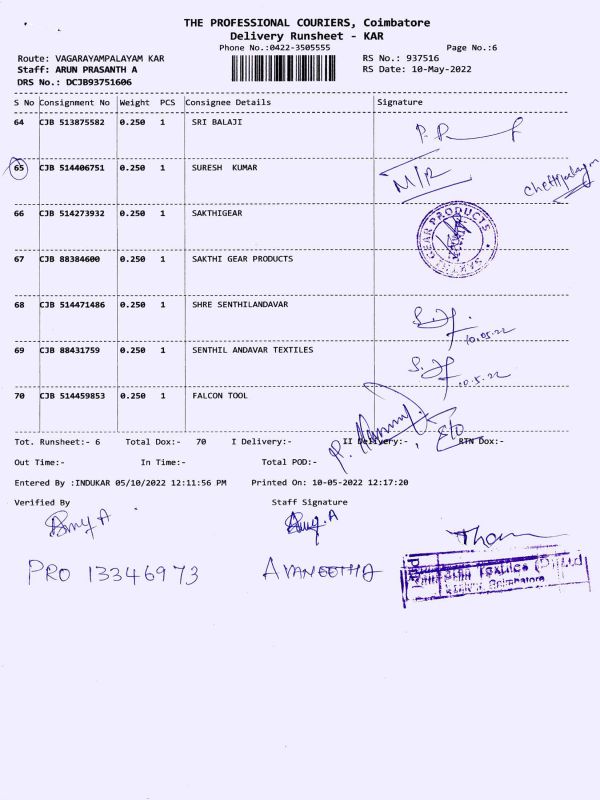 THE PROFESSIONAL COURIERS, Coimbatore
Delivery Runsheet - KAR
Phone No.:0422-3505555 Page No.:6
Route: VAGARAYAMPALAYAM KAR RS No.: 937516
Staff: ARUN PRASANTH A RS Date: 10-May-2022
DRS No.: DCJB93751606
S No Consignment No Weight PCS Consignee Details Signature
64 CJB 513875582 0.250 1 SRI BALAJI
65 CJB 514406751 0.250 1 SURESH KUMAR M/R
66 CJB 514273932 0.250 1 SAKTHIGEAR
GEAR PRODUCTS
67 CJB 88384600 0.250 1 SAKTHI GEAR PRODUCTS
68 CJB 514471486 0.250 1 SHRE SENTHILANDAVAR
10.05.22
69 CJB 88431759 0.250 1 SENTHIL ANDAVAR TEXTILES
10.5.22
70 CJB 514459853 0.250 1 FALCON TOOL
Tot. Runsheet:- 6 Total Dox:- 70 I Delivery:- II Delivery:- RTN Dox:-
Out Time:- In Time:- Total POD:-
Entered By :INDUKAR 05/10/2022 12:11:56 PM Printed On: 10-05-2022 12:17:20
Verified By Staff Signature
PRO 13346973
Coimbatore